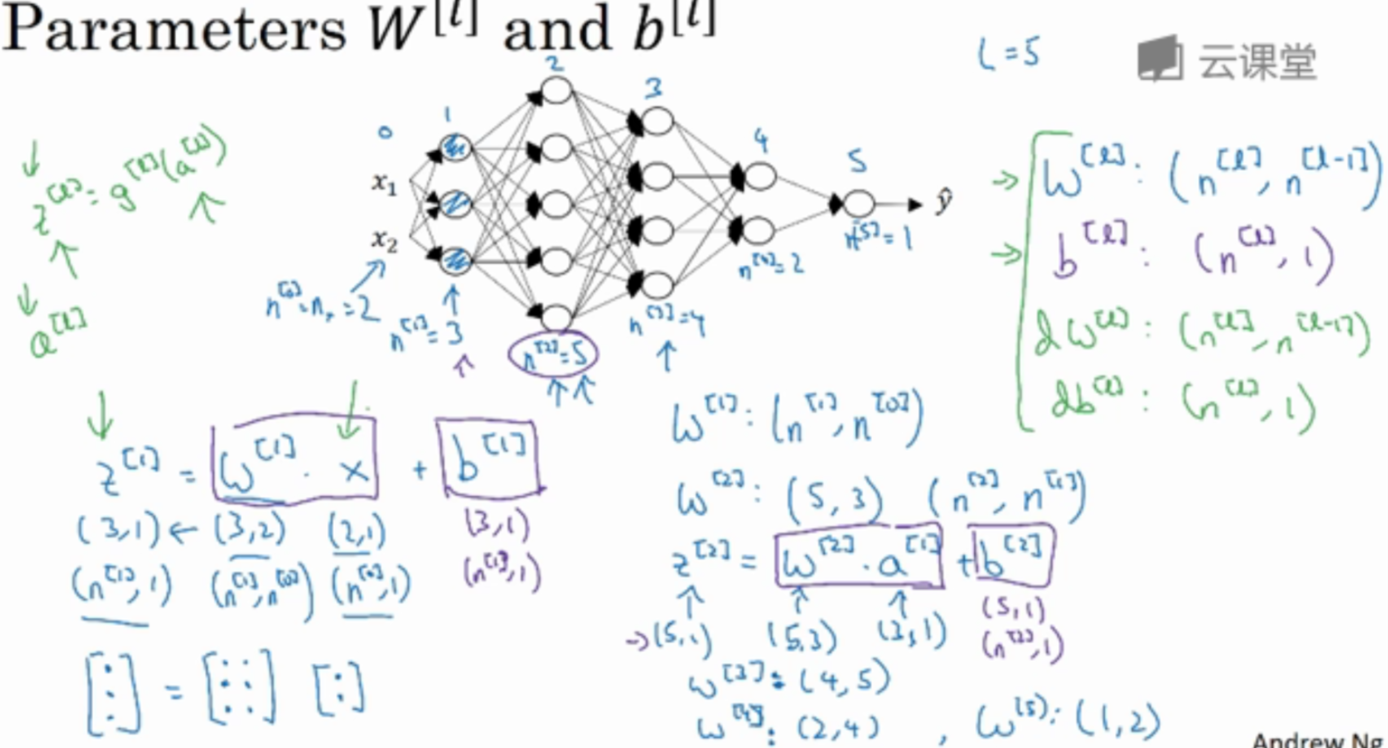 Parameters W^[l] and b^[l]
L=5
云课堂
0
1
2
3
4
5
x₁
x₂
ŷ
z^[l] = g^[l](a^[l])
a^[l]
n^[0]=nₓ=2
n^[1]=3
n^[2]=5
n^[3]=4
n^[4]=2
n^[5]=1
→ W^[l]: (n^[l], n^[l-1])
→ b^[l]: (n^[l], 1)
dW^[l]: (n^[l], n^[l-1])
db^[l]: (n^[l], 1)
z^[1] = W^[1] · x + b^[1]
(3,1) ← (3,2) (2,1) (3,1)
(n^[1],1) (n^[1],n^[0]) (n^[0],1) (n^[1],1)
W^[1]: (n^[1], n^[0])
W^[2]: (5,3) (n^[2], n^[1])
z^[2] = W^[2] · a^[1] + b^[2]
→(5,1) (5,3) (3,1) (5,1)
(n^[2],1)
W^[3]: (4,5)
W^[4]: (2,4) , W^[5]: (1,2)
Andrew Ng